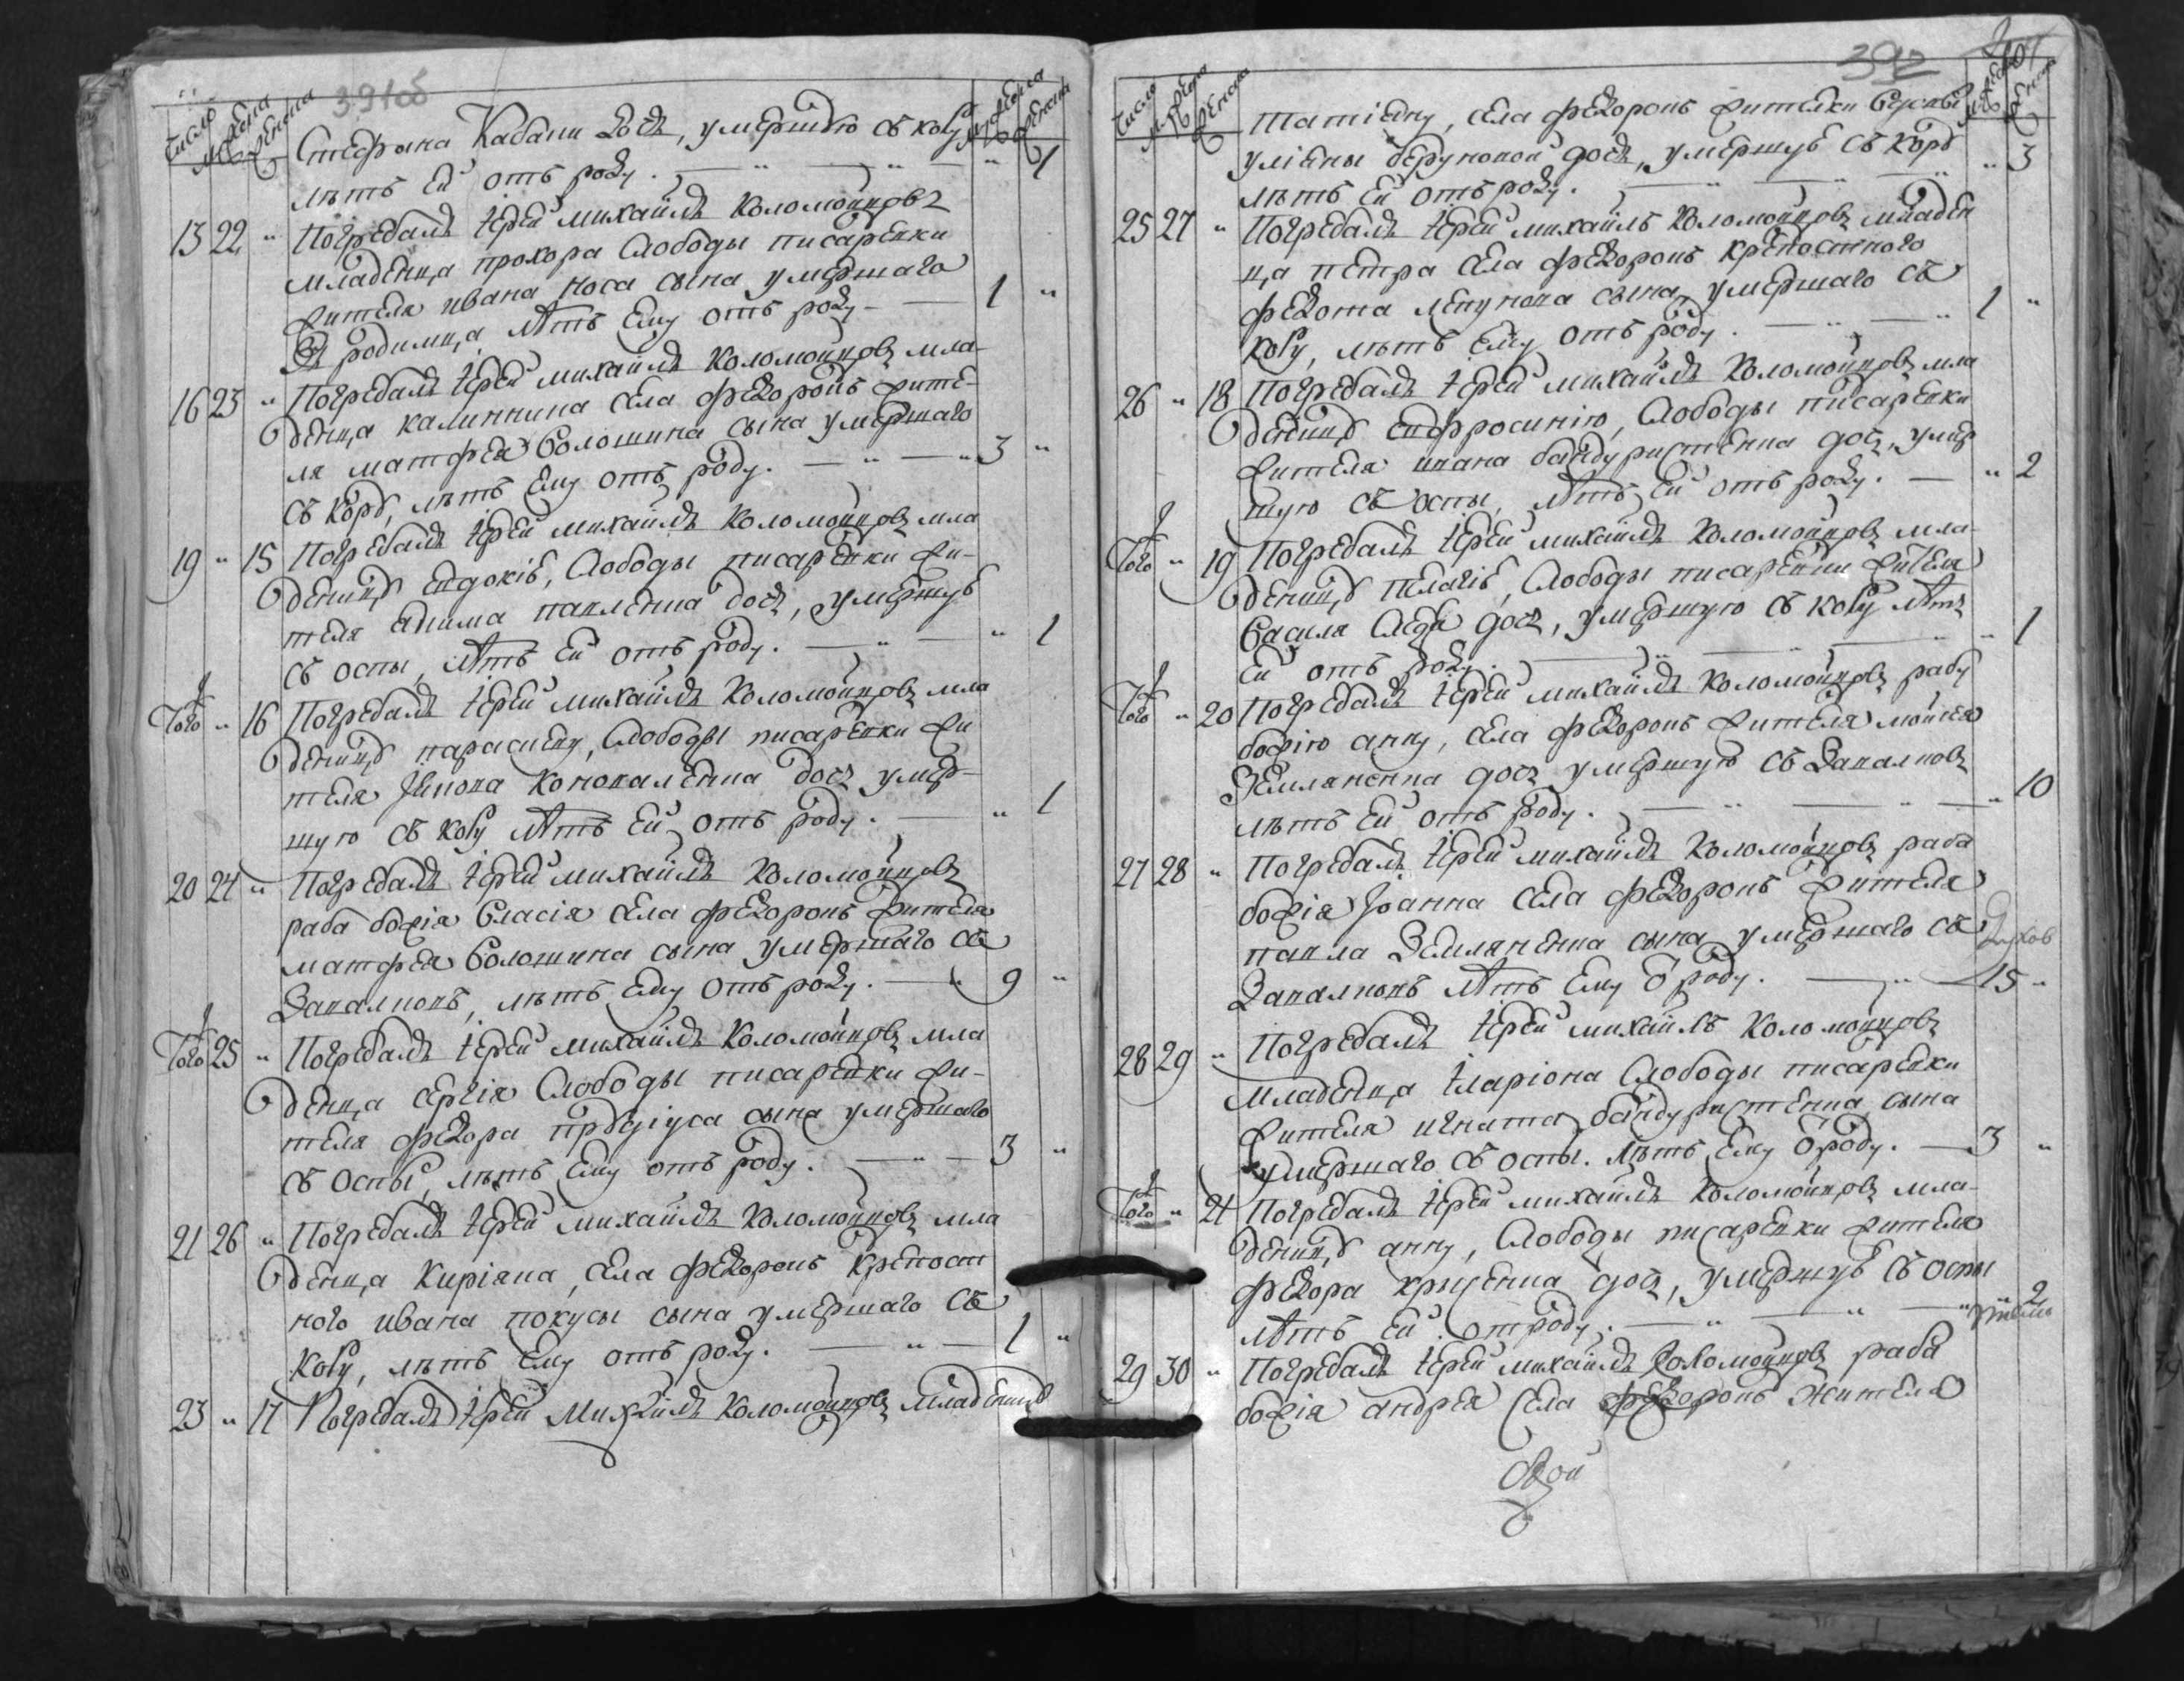 391об
число
мужеска
женска
мужеска
женска
Стефана Кабани дочь, умершую съ кору
лѣтъ ей отъ роду. " 1
13 22 " Погребалъ іерей михаилъ коломойцовъ
младенца прохора слободы писаревки
жителя ивана носа сына умершаго
родимца лѣтъ ему отъ роду 1 "
16 23 " Погребалъ іерей михаилъ коломойцовъ мла-
денца калинника села федоровъ жите-
ля матфея волошина сына умершаго
съ корю, лѣтъ ему отъ роду. 3 "
19 " 15 Погребалъ іерей михаилъ коломойцовъ мла
деницу евдокію, слободы писаревки жи-
теля акима павленка дочь, умершую
съ оспы, лѣтъ ей отъ роду. " 1
Того " 16 Погребалъ іерей михаилъ коломойцовъ мла
деницу параскеву, слободы писаревки жи
теля коноваленка дочь умер-
шую съ кору лѣтъ ей отъ роду. " 1
20 24 " Погребалъ іерей михаилъ коломойцовъ
раба божія власія села федоровъ жителя
матфея волошина сына умершаго съ
запалновъ, лѣтъ ему отъ роду. 9 "
Того 25 " Погребалъ іерей михаилъ коломойцовъ мла
денца сергія слободы писаревки жи-
теля федора сына умершаго
съ оспы, лѣтъ ему отъ роду. 3 "
21 26 " Погребалъ іерей михаилъ коломойцовъ мла
денца киріана, села федоровъ крепост
ного ивана покусы сына умершаго съ
кору, лѣтъ ему отъ роду. 1 "
23 " 17 Погребалъ іерей михаилъ коломойцовъ младеницу
392
число
мужеска
женска
мужеска
женска
татіену, села федоровъ жителки вдовы
уліены дочь, умершую съ корю
лѣтъ ей отъ роду. " 3
25 27 " Погребалъ іерей михаилъ коломойцовъ младен
ца петра села федоровъ крепостного
федота сына умершаго съ
кору, лѣтъ ему отъ роду. 1 "
26 " 18 Погребалъ іерей михаилъ коломойцовъ мла
деницу евфросинію, слободы писаревки
жителя ивана бандуристенка дочь умер
шую съ оспы, лѣтъ ей отъ роду. " 2
Того " 19 Погребалъ іерей михаилъ коломойцовъ мла-
деницу пелагію, слободы писаревки жителя
василя дочь, умершую съ кору лѣтъ
ей отъ роду. " 1
Того " 20 Погребалъ іерей михаилъ коломойцовъ рабу
божію анну, села федоровъ жителя мойсея
землянскна дочь умершую съ запалновъ
лѣтъ ей отъ роду. " 10
27 28 " Погребалъ іерей михаилъ коломойцовъ раба
божія іоанна села федоровъ жителя
павла земляненка сына умершаго съ
запалновъ лѣтъ ему о роду. 15 "
28 29 " Погребалъ іерей михаилъ коломойцовъ
младенца иларіона слободы писаревки
жителя игната бандуристенка сына
умершаго съ оспы. лѣтъ ему о роду. 3 "
Того " 21 Погребалъ іерей михаилъ коломойцовъ мла-
деницу анну, слободы писаревки жителя
федора дочь, умершую съ оспы
лѣтъ ей от роду. " 2
29 30 " Погребалъ іерей михаилъ коломойцовъ раба
божія андрея села федоровъ жителя